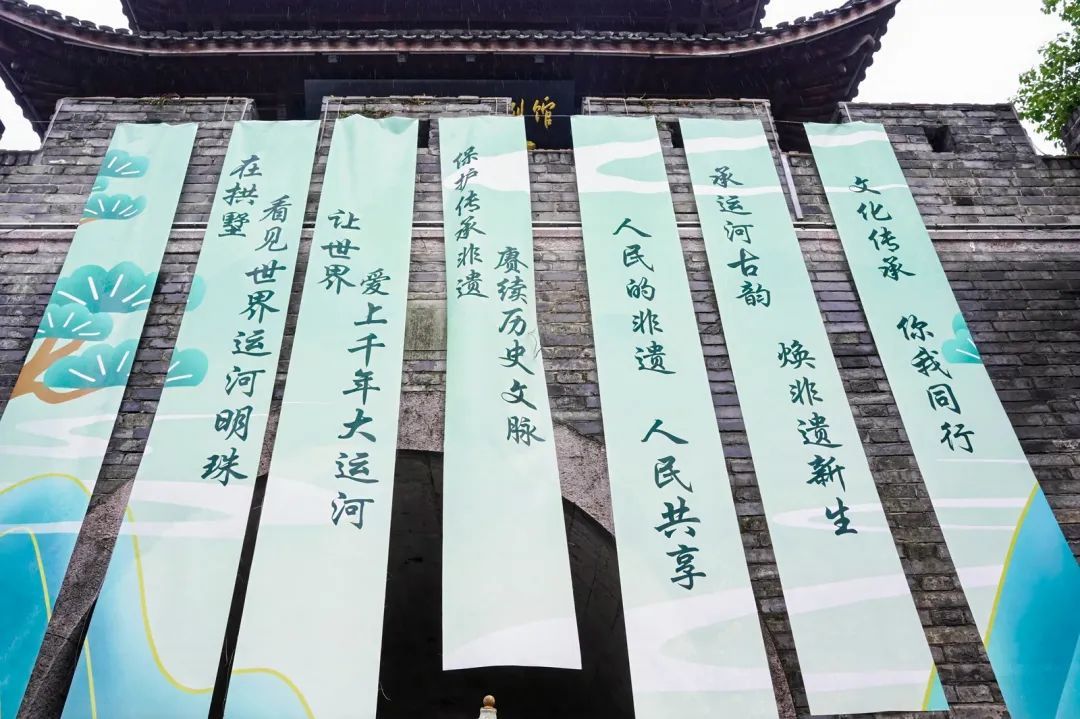 在拱墅
看见世界运河明珠
让世界
爱上千年大运河
保护传承非遗
赓续历史文脉
人民的非遗 人民共享
承运河古韵
焕非遗新生
文化传承 你我同行
馆